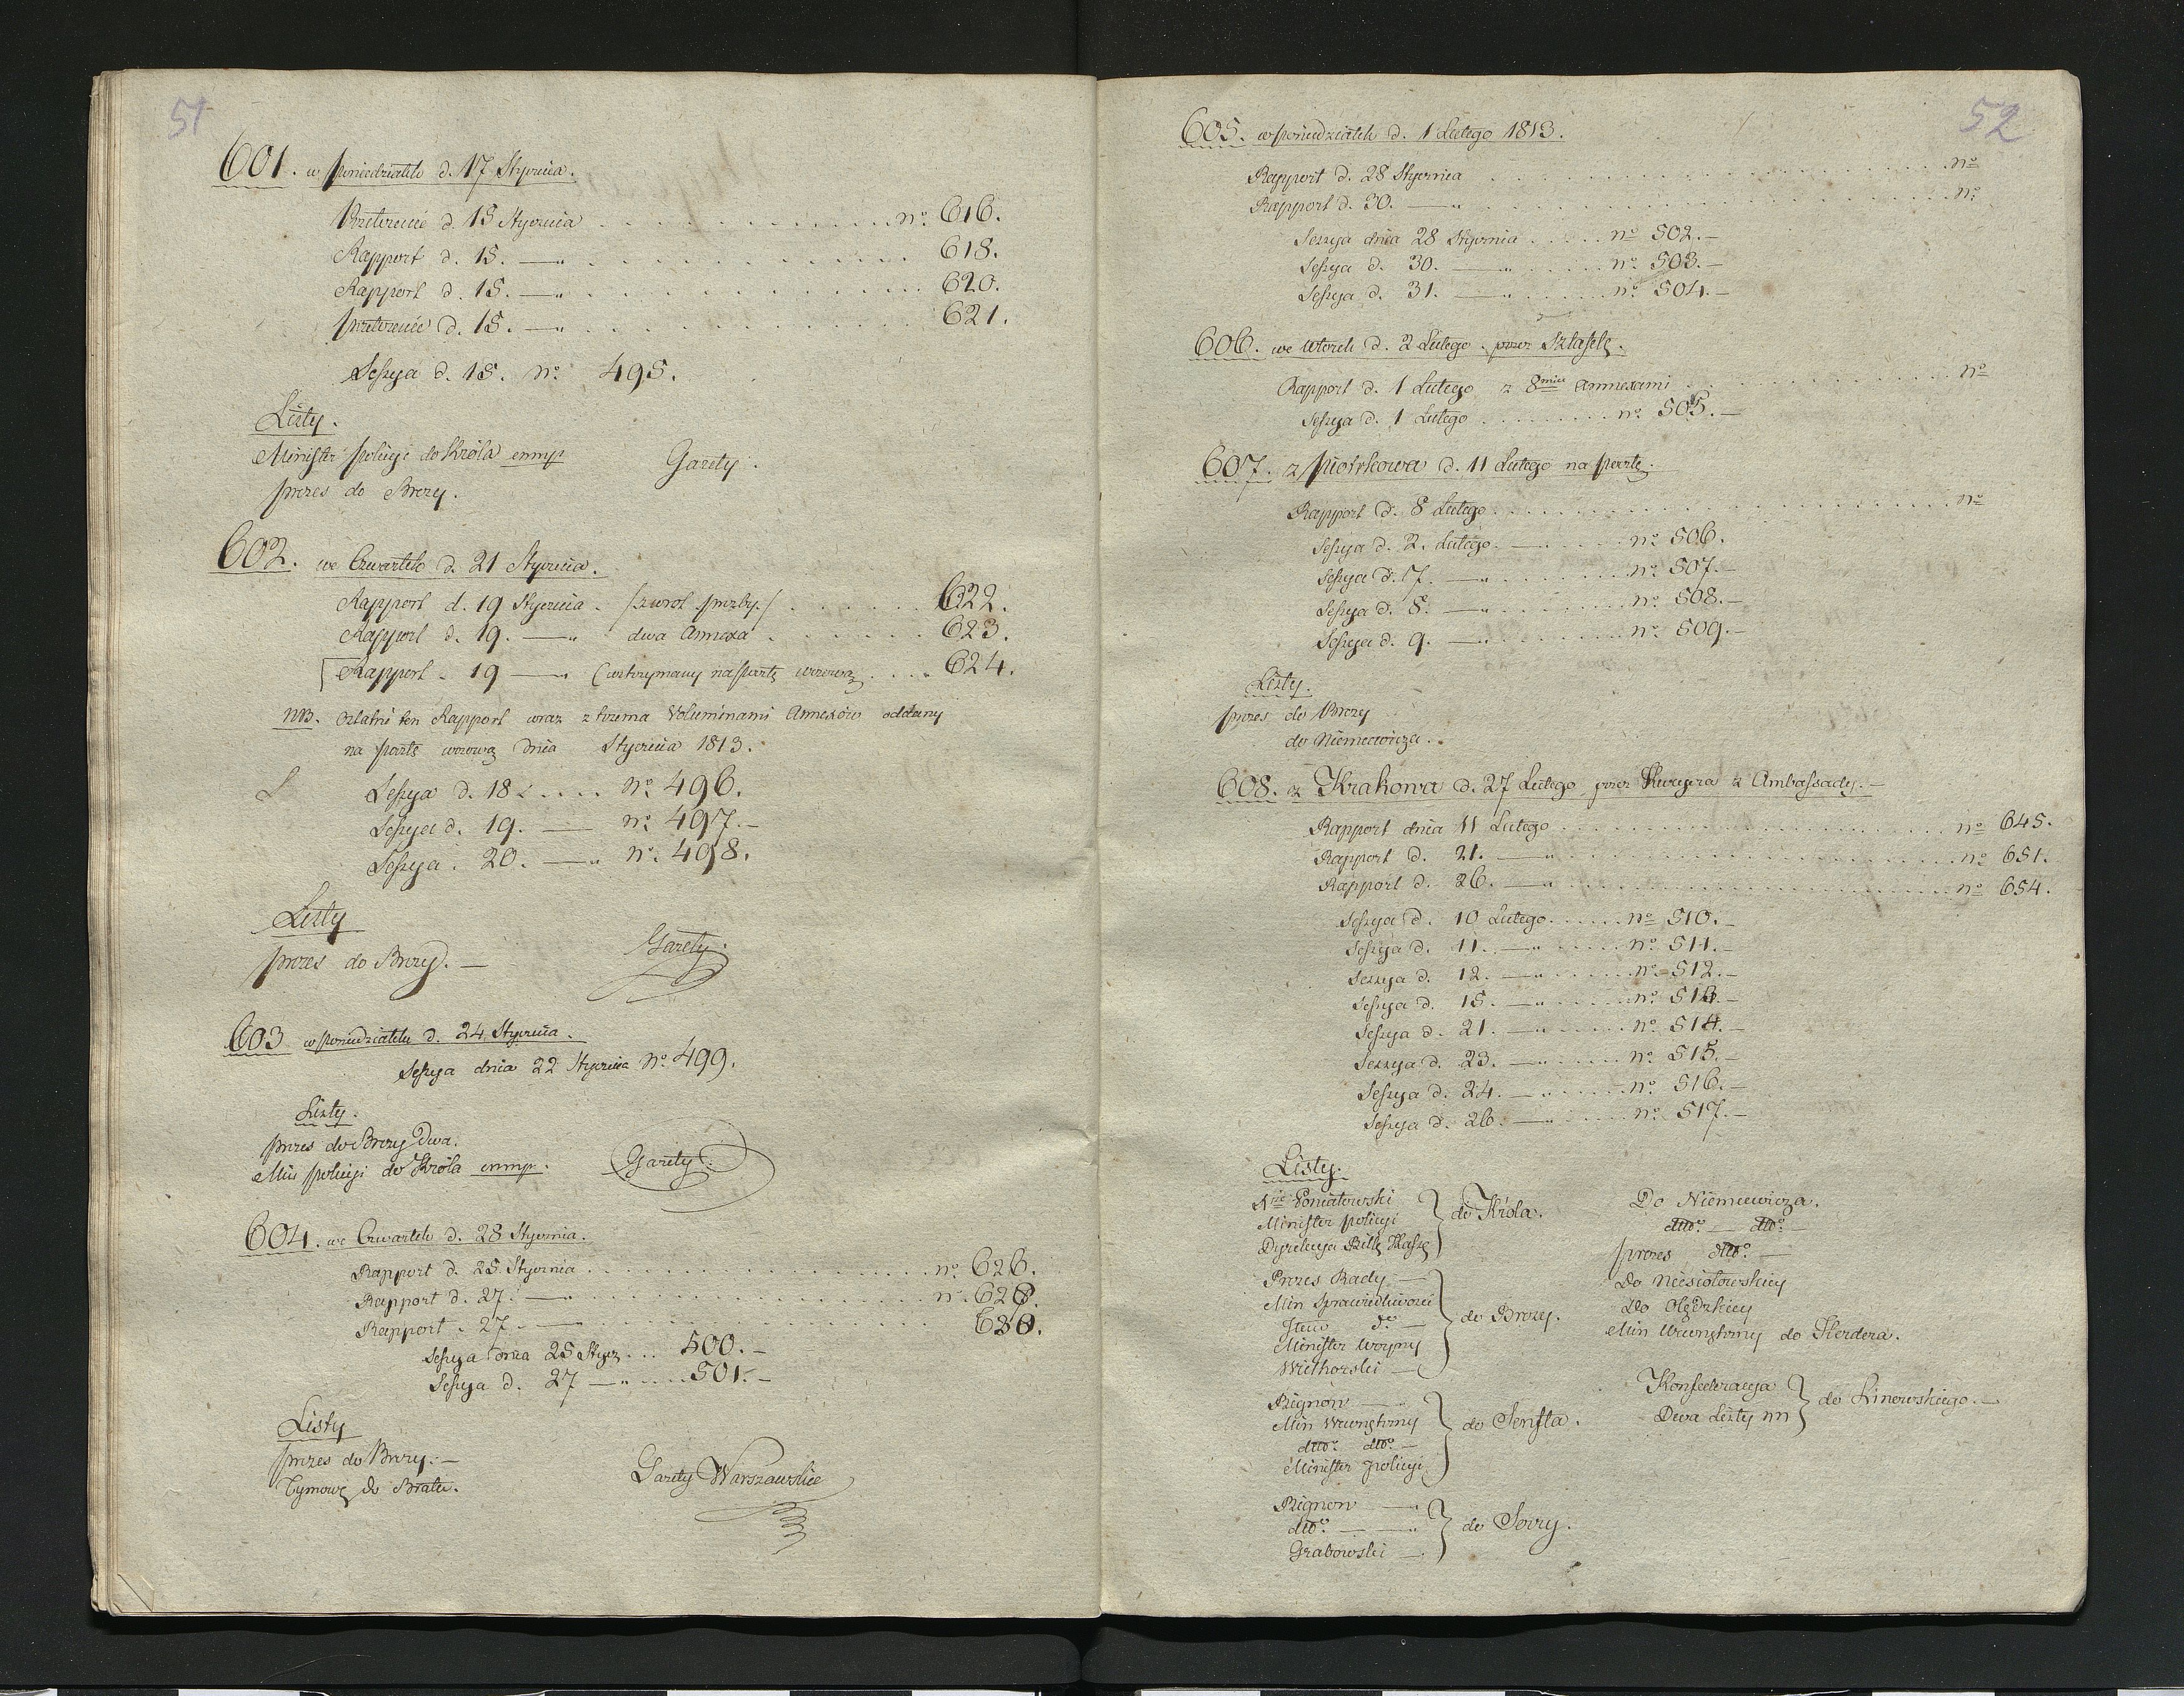 51
601. w poniedziałek d. 17 Stycznia.
Przełożenie d. 15 Stycznia . . . . . . . . . . . . nº 616.
Rapport d. 15. —„ . . . . . . . . . . . . 618.
Rapport d. 15. —„ . . . . . . . . . . . . 620.
przełożenie d. 15. —„ . . . . . . . . . . . . 621.
Sessya d. 15. nº 495.
Listy.
Minister policyi do Króla
prezes do Brezy.
Gazety.
602. we Czwartek d. 21 Stycznia.
Rapport d. 19 Stycznia . . . . . . 622.
Rapport d. 19. —„ dwa Annexa . . . . . . . 623.
Rapport . 19 —„ (wstrzymany na pocztę wozową . . . . 624.
NB. ostatni ten Rapport wraz z trzema Voluminami Annexów oddany
na pocztę wozową dnia Stycznia 1813.
Sessya d. 18 . . . . nº 496.
Sessya d. 19. — nº 497.–
Sessya . 20. —„ nº 498.
Listy
prezes do Brezy. —
Gazety.
603 w poniedziałek d. 24 Stycznia.
Sessya dnia 22 Stycznia Nº 499.
Listy.
prezes do Brezy Dwa.
Min policyi do Króla
Gazety.
604. we Czwartek d. 28 Stycznia.
Rapport d. 25 Stycznia . . . . . . . . . . . . nº 626.
Rapport d. 27. —„ . . . . . . . . . . . . nº 628.
Rapport . 27. — . . . . . . . . . . . . 630.
Sessya dnia 25 Stycz . . . 500.–
Sessya d. 27 —„ . . . . 501.–
Listy
prezes do Brezy.—
Tymowę do Brata.
Gazety Warszawskie
52
605. w poniedziałek d. 1 Lutego 1813.
Rapport d. 28 Stycznia . . . . . . . . . . . . nº
Rapport d. 30. —„ . . . . . . . . . . . . nº
Sessya dnia 28 Stycznia . . . . . nº 502.–
Sessya d. 30. —„ . . . . . nº 503.–
Sessya d. 31. —„ . . . . . nº 504.–
606. we Wtorek d. 2 Lutego przez Sztafetę.
Rapport d. 1 Lutego z 8miu annexami . . . . . . . . . nº
Sessya d. 1 Lutego . . . . . . . nº 505.–
607. z Piotrkowa d. 11 Lutego na pocztę.
Rapport d. 8 Lutego . . . . . . . . . . . . nº
Sessya d. 2. Lutego. — . . . . nº 506.
Sessya d. 7. —„ . . . . . . . nº 507.–
Sessya d. 8. —„ . . . . . . . nº 508.–
Sessya d. 9. —„ . . . . . . . nº 509.–
Listy.
prezes do Brezy
do Niemcewicza.
608. z Krakowa d. 27 Lutego przez Kuryera z Ambassady.–
Rapport dnia 11 Lutego . . . . . . . . . . . . nº 645.
Rapport d. 21. —„ . . . . . . . . . . . . nº 651.
Rapport d. 26. —„ . . . . . . . . . . . . nº 654.
Sessya d. 10 Lutego . . . . . nº 510.–
Sessya d. 11. —„ . . . . . nº 511.–
Sessya d. 12. —„ . . . . . nº 512.–
Sessya d. 15. —„ . . . . . nº 513.–
Sessya d. 21. —„ . . . . . nº 514.–
Sessya d. 23. —„ . . . . . nº 515.–
Sessya d. 24. —„ . . . . . nº 516.–
Sessya d. 26. —„ . . . . . nº 517.–
Listy.
Poniatowski
Minister policyi
Dyrekcya
do Króla.
Prezes Rady —
Min Sprawiedliwości
dº —
Minister Woyny
Wielhorski —
do Brezy.
Bignon —„
Min Wewnętrzny
ditto ditto —
Minister policyi
do Senfta.
Bignon —„
ditto — —„
Grabowski —
do Serry.
Do Niemcewicza.
ditto — ditto —
prezes ditto —
Do Niesiołowskiey
Do Olędzkiey
Min Wewnętrzny do Herdera.
Konfederacya
Dwa Listy nn
do Linowskiego.—